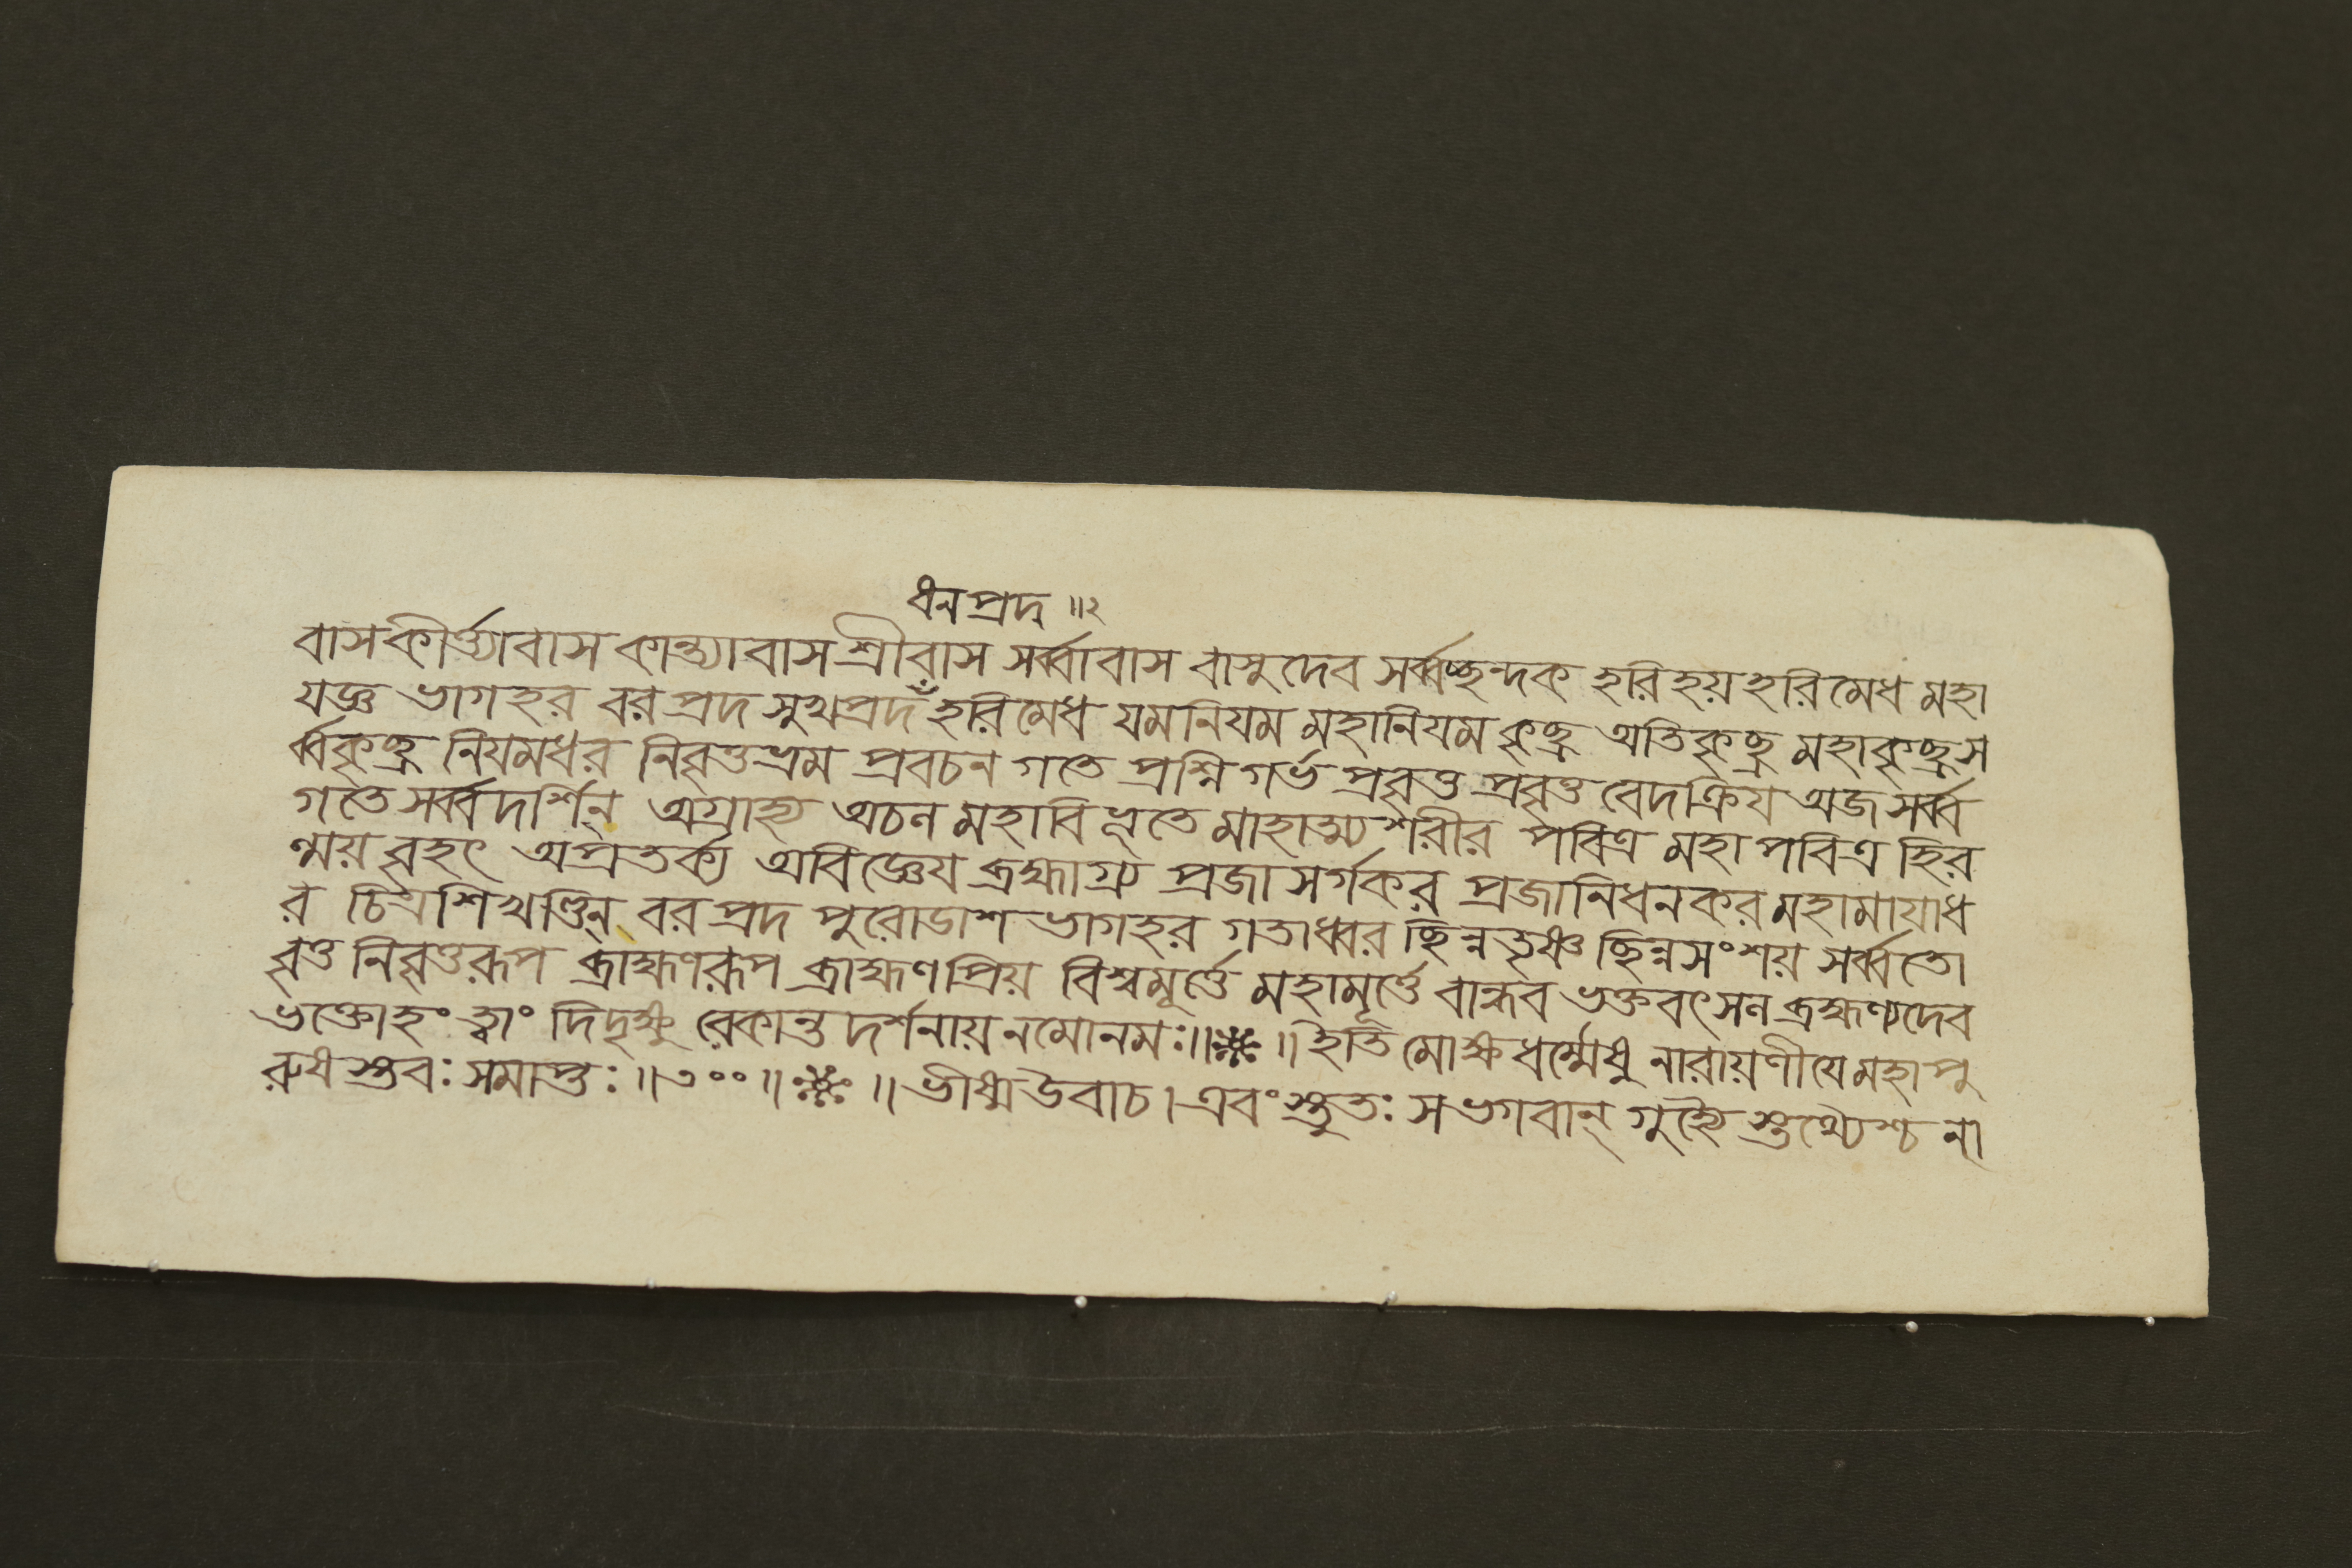 ধনপ্রদ ॥২
বাসকীর্ত্ত্যাবাস কান্ত্যাবাস শ্রীবাস সর্ব্বাবাস বাসুদেব সর্ব্বচ্ছন্দক হরিহয় হরিমেধ মহা
যজ্ঞ ভাগহর বরপ্রদ সুখপ্রদ হরিমেধ যমনিযম মহানিযম কৃচ্ছ্র অতিকৃচ্ছ্র মহাকৃচ্ছ্র স
র্ব্বকৃচ্ছ্র নিযমধর নিবৃত্তভ্রম প্রবচন গতে প্রশ্নিগর্ভ প্রবৃত্ত প্রবৃত্ত বেদক্রিয অজ সর্ব্ব
গতে সর্ব্বদর্শিন্ অগ্রাহ্য অচল মহাবিভূতে মাহাত্ম্যশরীর পবিত্র মহাপবিত্র হির
ণ্ময় বৃহৎ অপ্রতর্ক্য অবিজ্ঞেয ব্রহ্মাগ্র্য প্রজাসর্গকর প্রজানিধনকর মহামাযাধ
র চিত্রশিখণ্ডিন্ বরপ্রদ পুরোডাশ ভাগহর গতাধ্বর ছিন্নতৃষ্ণ ছিন্নসংশয় সর্ব্বতো
বৃত্ত নিবৃত্তরূপ ব্রাহ্মণরূপ ব্রাহ্মণপ্রিয় বিশ্বমূর্ত্তে মহামূর্ত্তে বান্ধব ভক্তবৎসল ব্রহ্মণ্যদেব
ভক্তোহং ত্বাং দিদৃক্ষু রেকান্ত দর্শনায় নমোনমঃ॥❋॥ ইতি মোক্ষধর্ম্মেষু নারায়ণীযে মহাপু
রুষ স্তবঃ সমাপ্তঃ ॥৩০০॥❋॥ ভীষ্মউবাচ। এবং স্তুতঃ স ভগবান্ গুহ্যৈ স্তথ্যৈশ্চ না